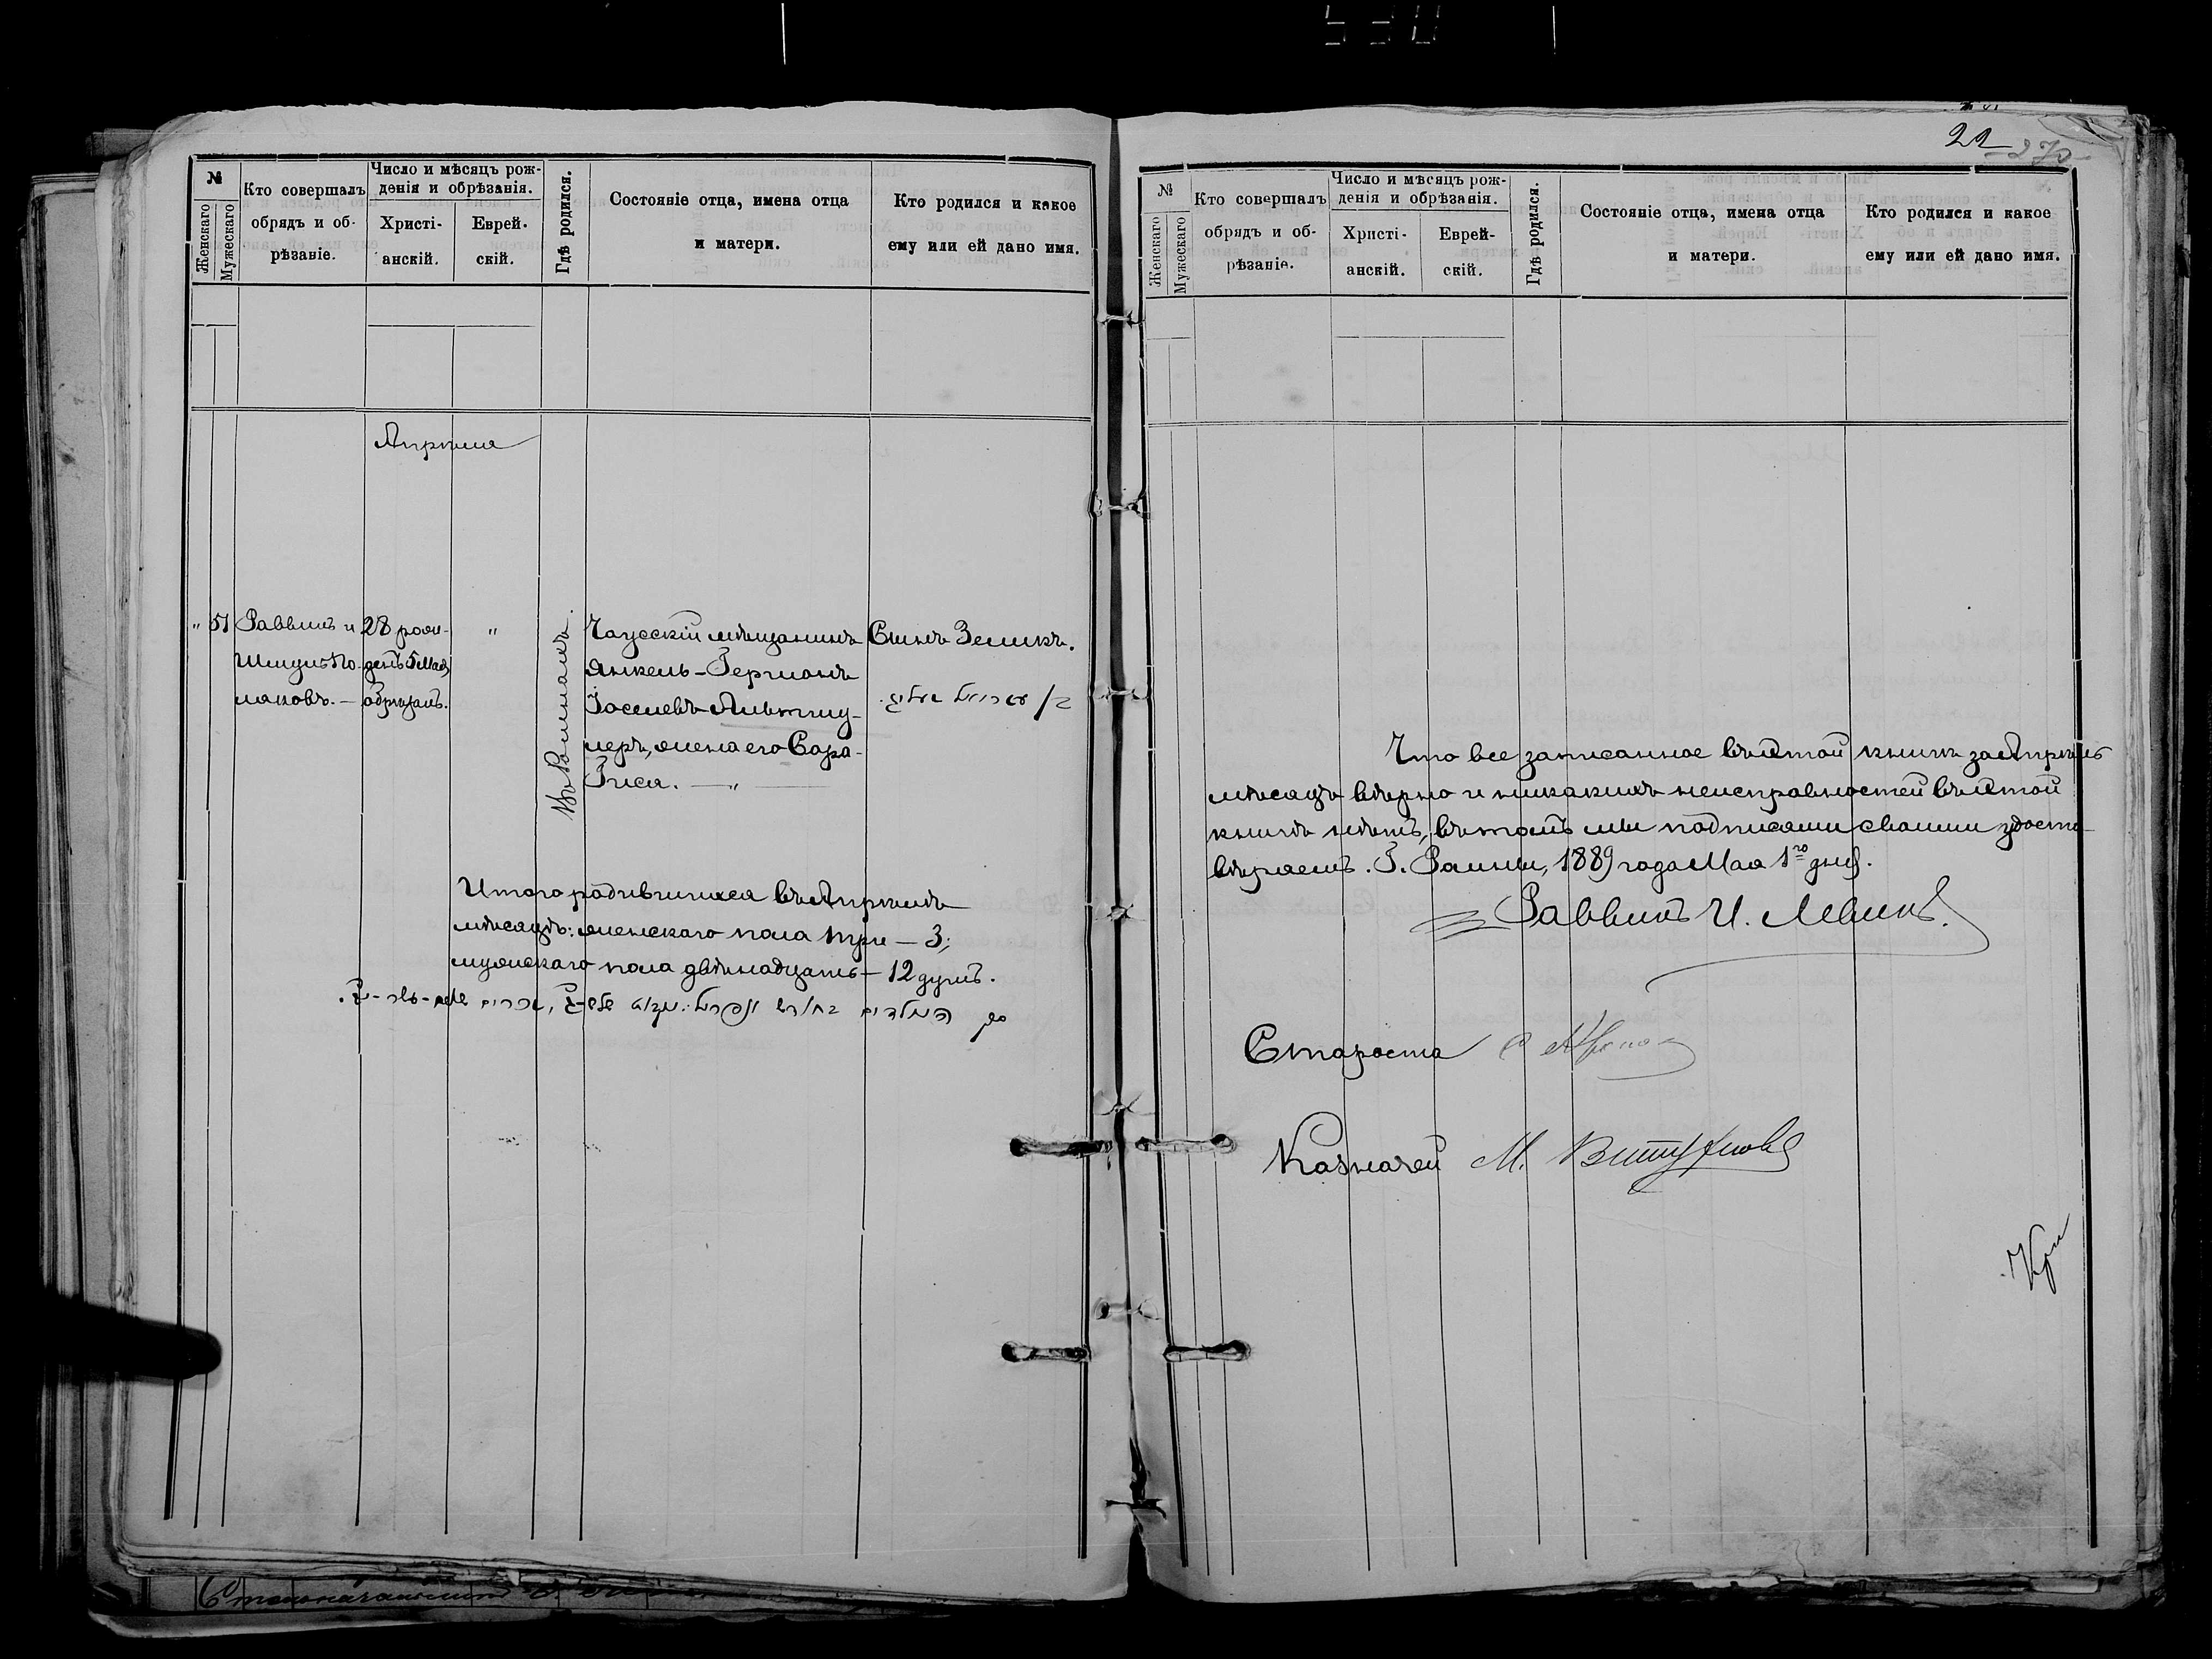 530
№
Женскаго
Мужескаго
Кто совершалъ
обрядъ и об-
рѣзаніе.
Число и мѣсяцъ рож-
денія и обрѣзанія.
Христі-
анскій.
Еврей-
скій.
Гдѣ родился.
Состояніе отца, имена отца
и матери.
Кто родился и какое
ему или ей дано имя.
Апрѣля
" 51
Раввинъ и
28 рож-
денъ 5 Мая
обрѣзанъ.
"
Въ Ромнахъ.
Чаусскій мѣщанинъ
Янкель-Германъ
жена его Сара-
Гися. — " —
Сынъ Зеликъ.
Итого родившихся въ Апрѣлѣ
мѣсяцѣ: женскаго пола три — 3;
мужскаго пола двѣнадцать — 12 душъ.
22
-270-
№
Женскаго
Мужескаго
Кто совершалъ
обрядъ и об-
рѣзаніе.
Число и мѣсяцъ рож-
денія и обрѣзанія.
Христі-
анскій.
Еврей-
скій.
Гдѣ родился.
Состояніе отца, имена отца
и матери.
Кто родился и какое
ему или ей дано имя.
Что все записанное въ этой книгѣ за Апрѣль
мѣсяцъ вѣрно и никакихъ неисправностей въ этой
книгѣ нѣтъ, въ томъ мы подписями своими удосто-
вѣряемъ. Г. Ромны, 1889 года Мая 1го дня.
Раввинъ И. Левинъ.
Староста
Казначей М.